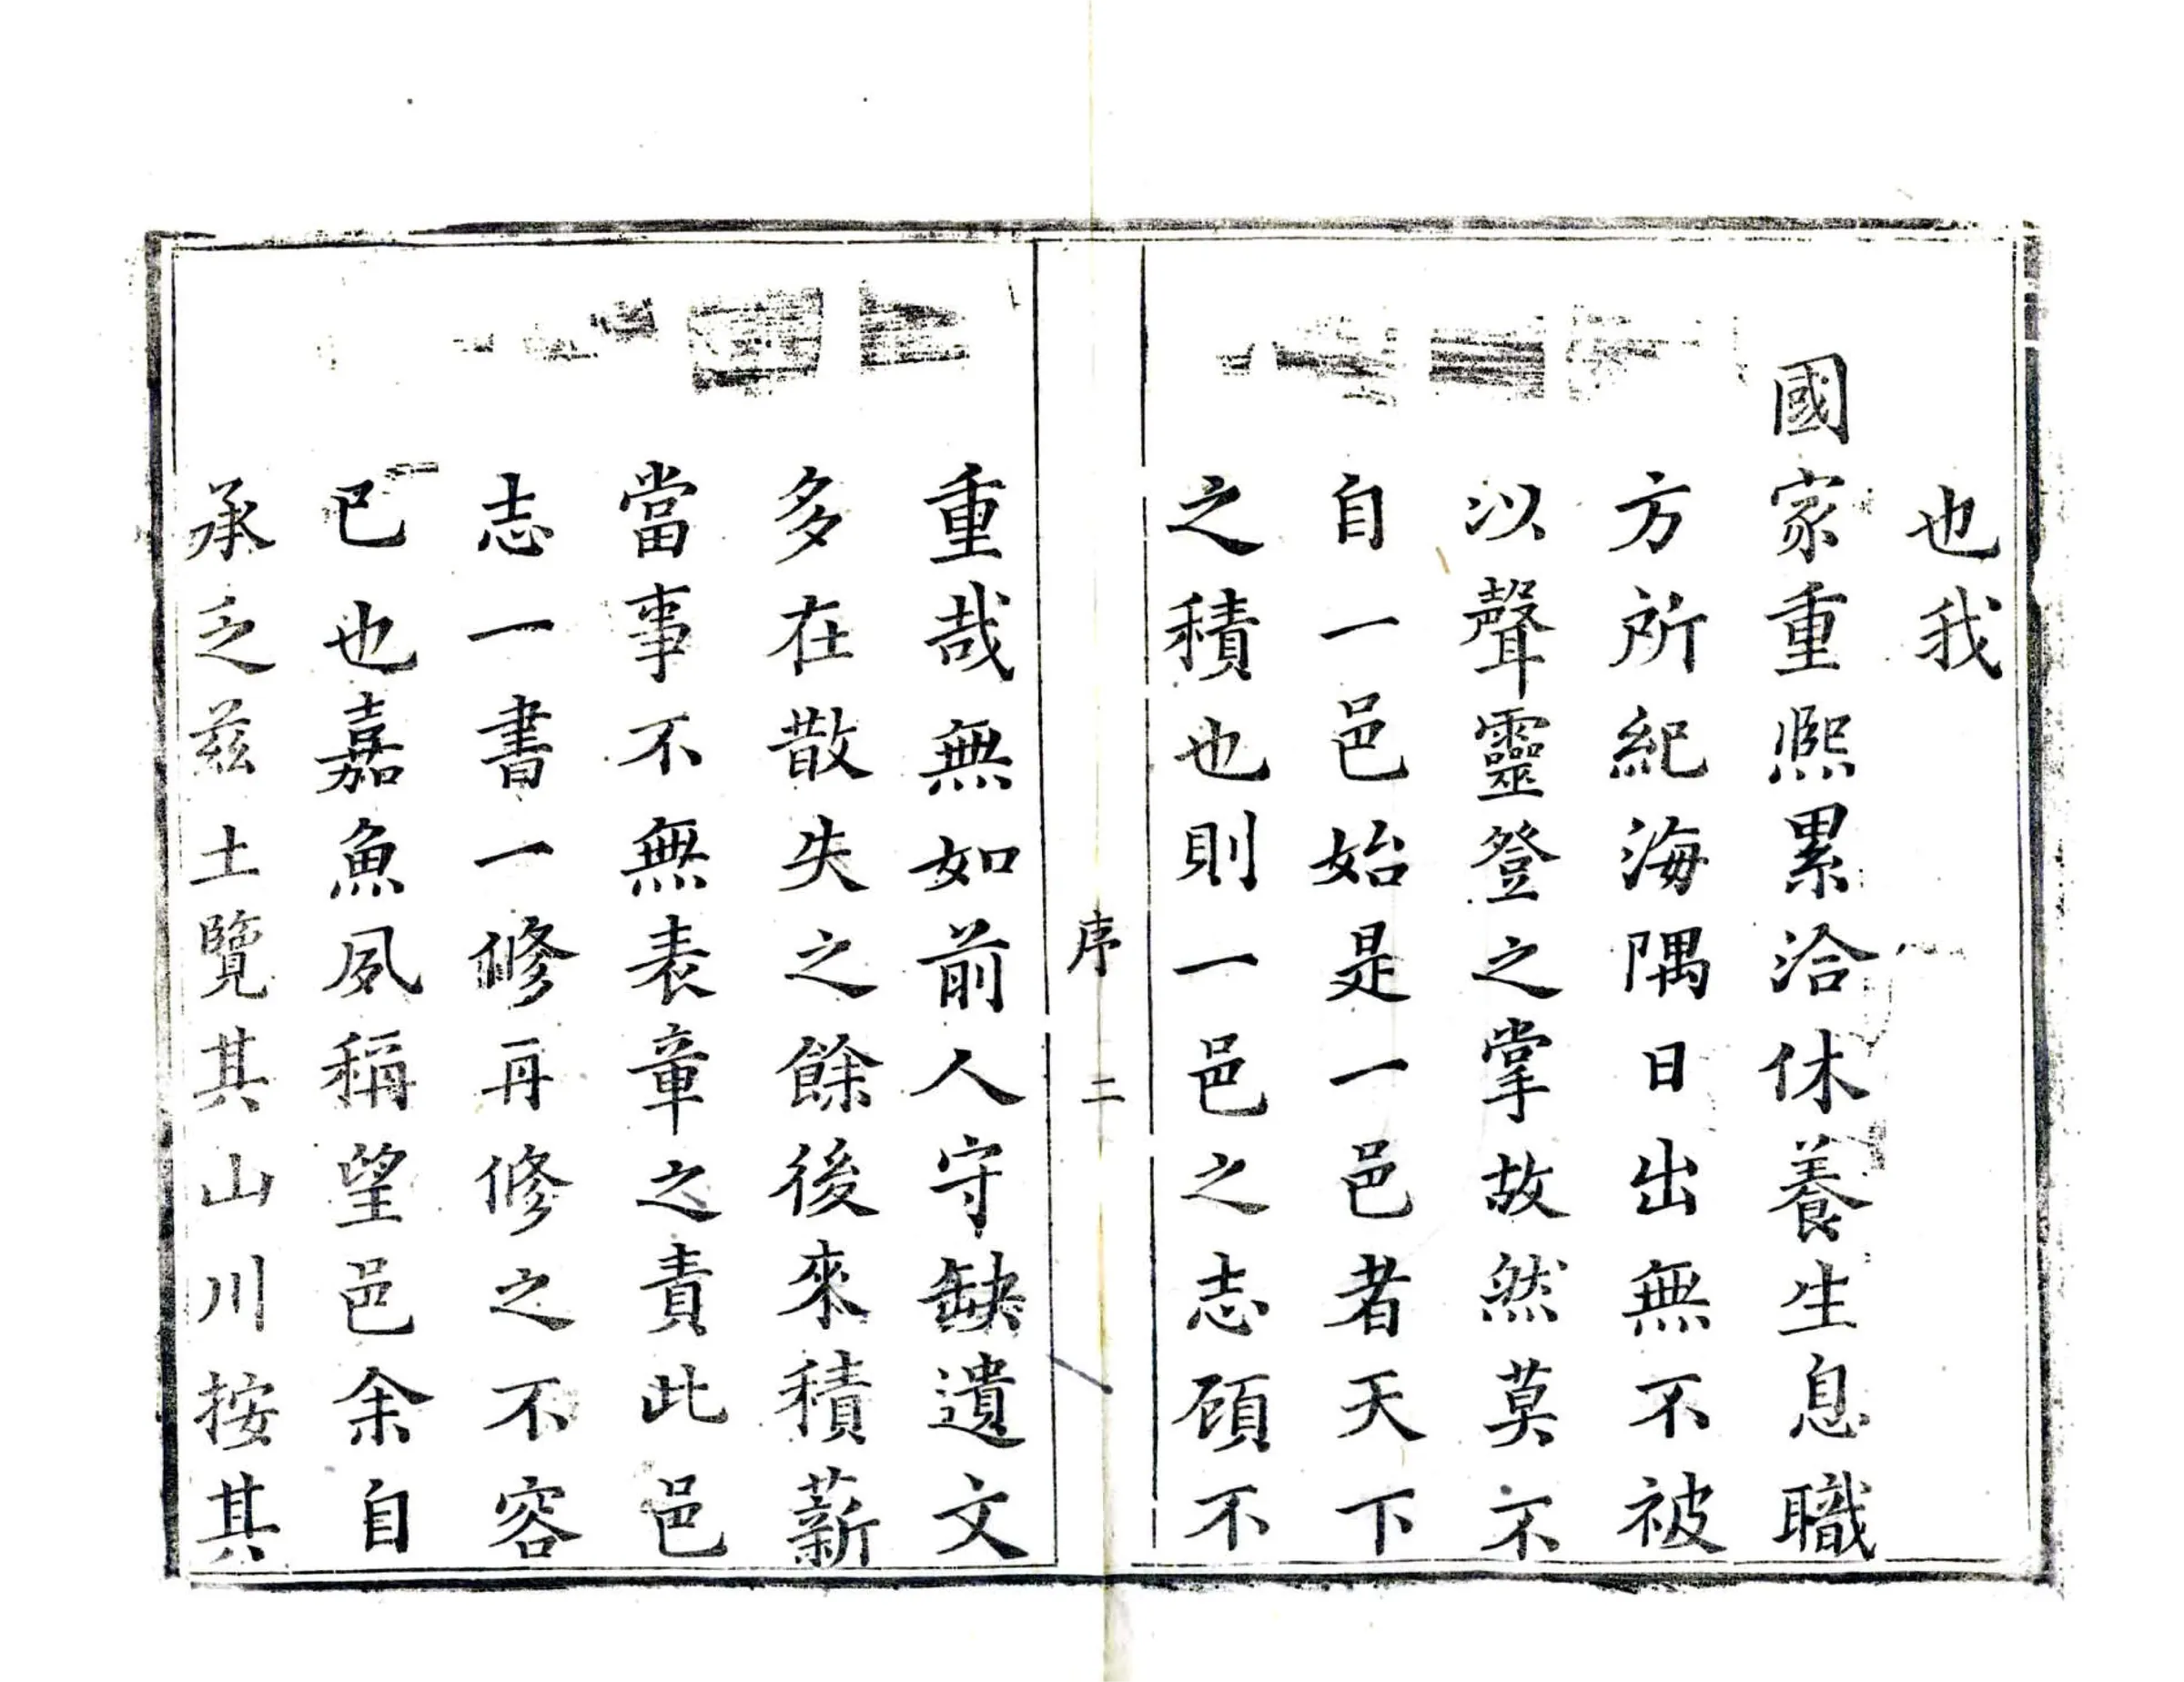 也我
國家重熈累洽休養生息職
方所紀海隅日出無不被
以聲靈登之掌故然莫不
自一邑始是一邑者天下
之積也則一邑之志頋不
序 二
重哉無如前人守缺遺文
多在散失之餘後來積薪
當事不無表章之責此邑
志一書一修再修之不容
已也嘉魚夙稱望邑余自
承乏兹土覽其山川按其